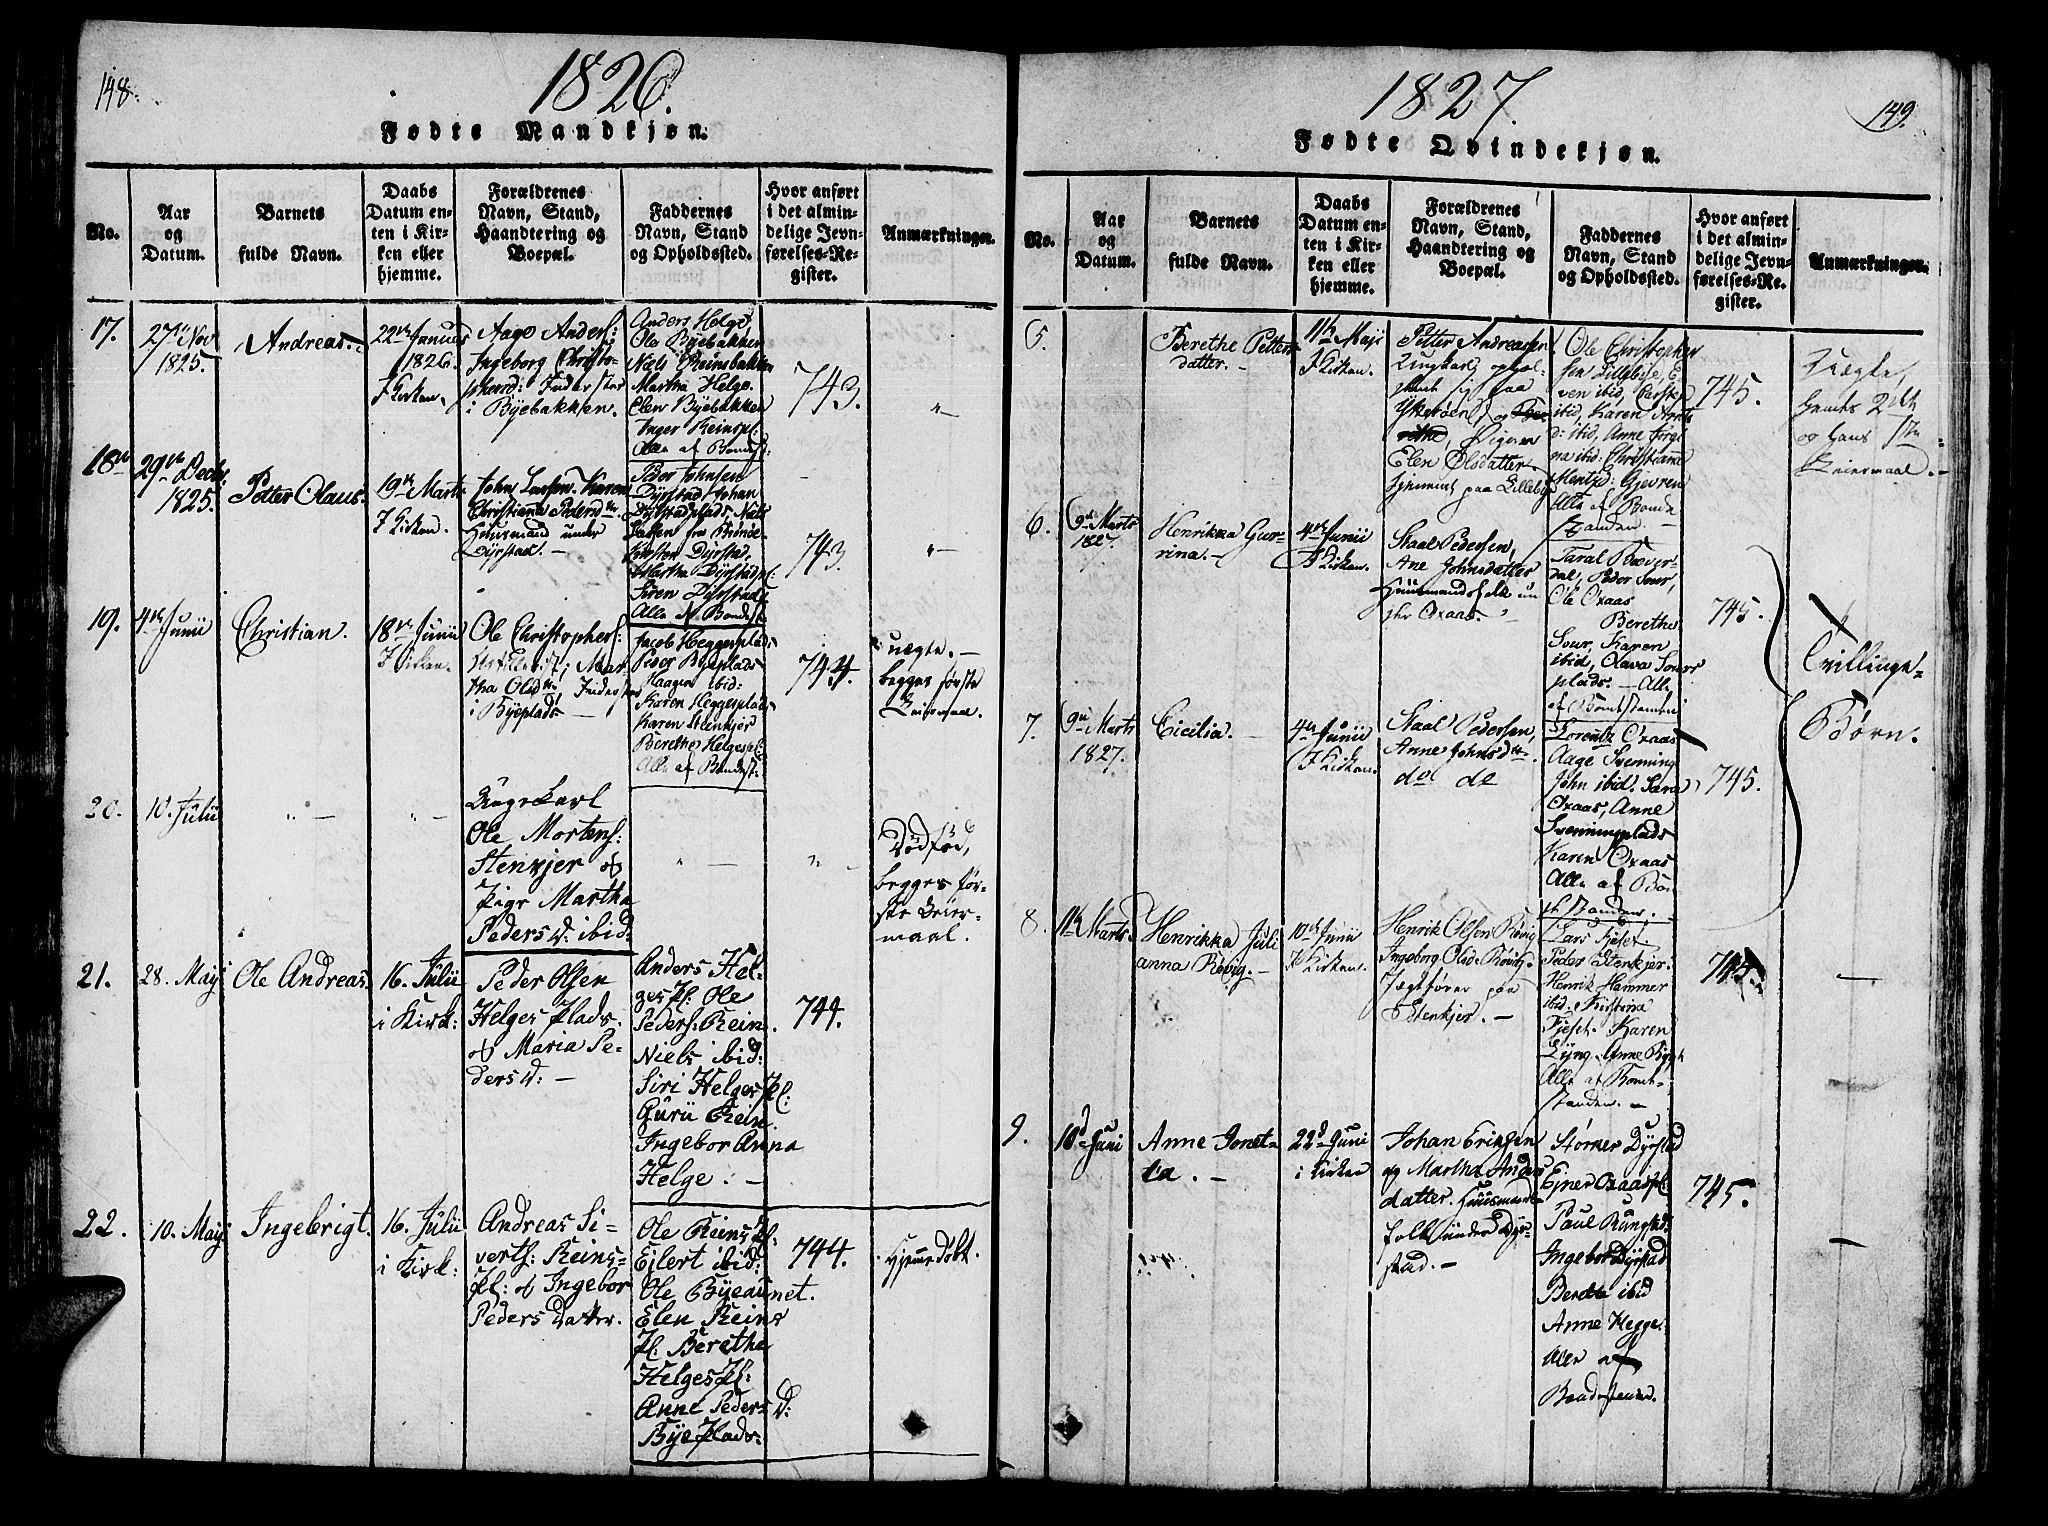 148.
1826.
Fødte Mandkjøn.
No.
Aar
og
Datum.
Barnets
fulde Navn.
Daabs
Datum en-
ten i Kir-
ken eller
hjemme.
Forældrenes
Navn, Stand,
Haandtering og
Boepæl.
Faddernes
Navn, Stand
og Opholdssted.
Hvor anført
i det almin-
delige Jevn-
førelses-Re-
gister.
Anmærkninger.
17.
27de Nov
1825.
Andreas.
22de
1826.
I Kirken.
Aage Anders:
Ingeborg Christo-
i Byebakken.
Anders Helge
Ole Byebakken
Niels Reinsbakken
Martha Helge.
Elen Byebakken
Inger Reinspl:
Alle af Bondest:
743.
18de
29de Decbr
1825.
Petter Olaus.
19de Marts
I Kirken.
John Larsen. Karen
Christiana Pedersdtr
Huusmand under
Dyrstad. —
Peder Johnsen
Dyrstad, Johan
Dyrstadplads, Niels
Kirsten Dyrstad,
Martha Dyrstadpl:
Siren Dyrstad
Alle af Bondest:
743.
19.
4de Junii
Christian.
18de Junii
I Kirken.
Ole Christophers:
Mar-
tha Olsdtr
i Byeplads —
Jacob Heggesplads
Peder Byeplads
Haagen ibid:
Karen Heggesplads
Karen Stenkjer
Berethe Helgespl:
Alle af Bondest:
744.
uægte. —
begges første
Leiermaal.
20.
10. Julii
Ungekarl
Ole Mortens:
Stenkjer og
Pige Martha
Peders D: ibid:
Dødfød,
begges før-
ste Leier-
maal.
21.
28. May
Ole Andreas.
16. Julii
i Kirk:
Peder Olsen
Helges Plads.
og Maria Pe-
ders D: —
Anders Hel-
ges Pl: Ole
Peders: Rein.
Niels ibid:
Siri Helges Pl:
Guru Rein.
Ingebor Anna
Helge. —
744.
22.
10. May
Ingebrigt.
16. Julii
i Kirk:
Andreas Si-
verts: Reins-
Pl: og Ingebor
Peders Datter.
Ole Reins Pl.
Ejlert ibid:
Ole Byeaunet.
Elen Reins
Pl: Berethe
Helges Pl:
Anne Peders D:
Bye Plads:
744.
Hjemedøbt.
149.
1827.
Fødte Qvindekjøn.
No.
Aar
og
Datum.
Barnets
fulde Navn.
Daabs
Datum en-
ten i Kir-
ken eller
hjemme.
Forældrenes
Navn, Stand,
Haandtering og
Boepæl.
Faddernes
Navn, Stand
og Opholdssted.
Hvor anført
i det almin-
delige Jevn-
førelses-Re-
gister.
Anmærkninger.
5.
Berethe Petters
datter. —
11te Maji
I Kirken.
Petter Andreasen
Ungkarl ophol-
og
Pigen
Elen Olsdatter
tjenende paa Lillebye
Ole Christopher
sen Lillebye, E-
ven ibid, Carsten
ibid, Karen
ibid, Anne Jørgi
na ibid, Christianna
Gjevren
Alle af Bonde
standen. —
745.
Uægte,
hendes 2det
og hans 1ste
Leiermaal. —
6.
9de Marts
1827.
Henrikka Gur-
rina. —
4de Junii
I Kirken.
Staal Pedersen,
Ane Johnsdatter
Huusmandsfolk un
der Oxaas.
Taral Bøver-
dal, Peder Sour,
Ole Oxaas
Berethe
Sour, Karen
ibid, Olava Sours
plads. — Alle
af Bondestanden
745.
Tvillinge-
Børn.
7.
9de Marts
1827.
Cicilia. —
4de Junii
I Kirken.
Staal Pedersen,
Anne Johnsdtr.
do do
Lorentz Oxaas
Aage Svenning
John ibid. Sara
Oxaas, Anne
Svenningplads
Karen Oxaas
Alle af Bon-
destanden.
745.
8.
11te Marts.
Henrikka Juli
anna Røvig. —
10de Junii
I Kirken.
Henrik Olsen Røvig
Ingeborg Olsd: Røvig.
Jægtfører paa
Stenkjer. —
Lars Fjeset.
Peder Stenkjer.
Henrik Hammer
ibid. Kirstina
Fjeset. Karen
Lyng. Anne
Alle af Bonde-
standen. —
745.
9.
10d Juni
Anne Jonet-
ta. —
22d Juni
i Kirken
Johan Eringen
og Martha Anders
datter. Huusmands-
folk under Dyr-
stad. —
Størner Dyrstad
Ejner Oxaaspl:
Paul Rungstad
Ingebor Dyrstad
Berete ibid
Anne Hegge.
Alle af
Bondestanden.
745.